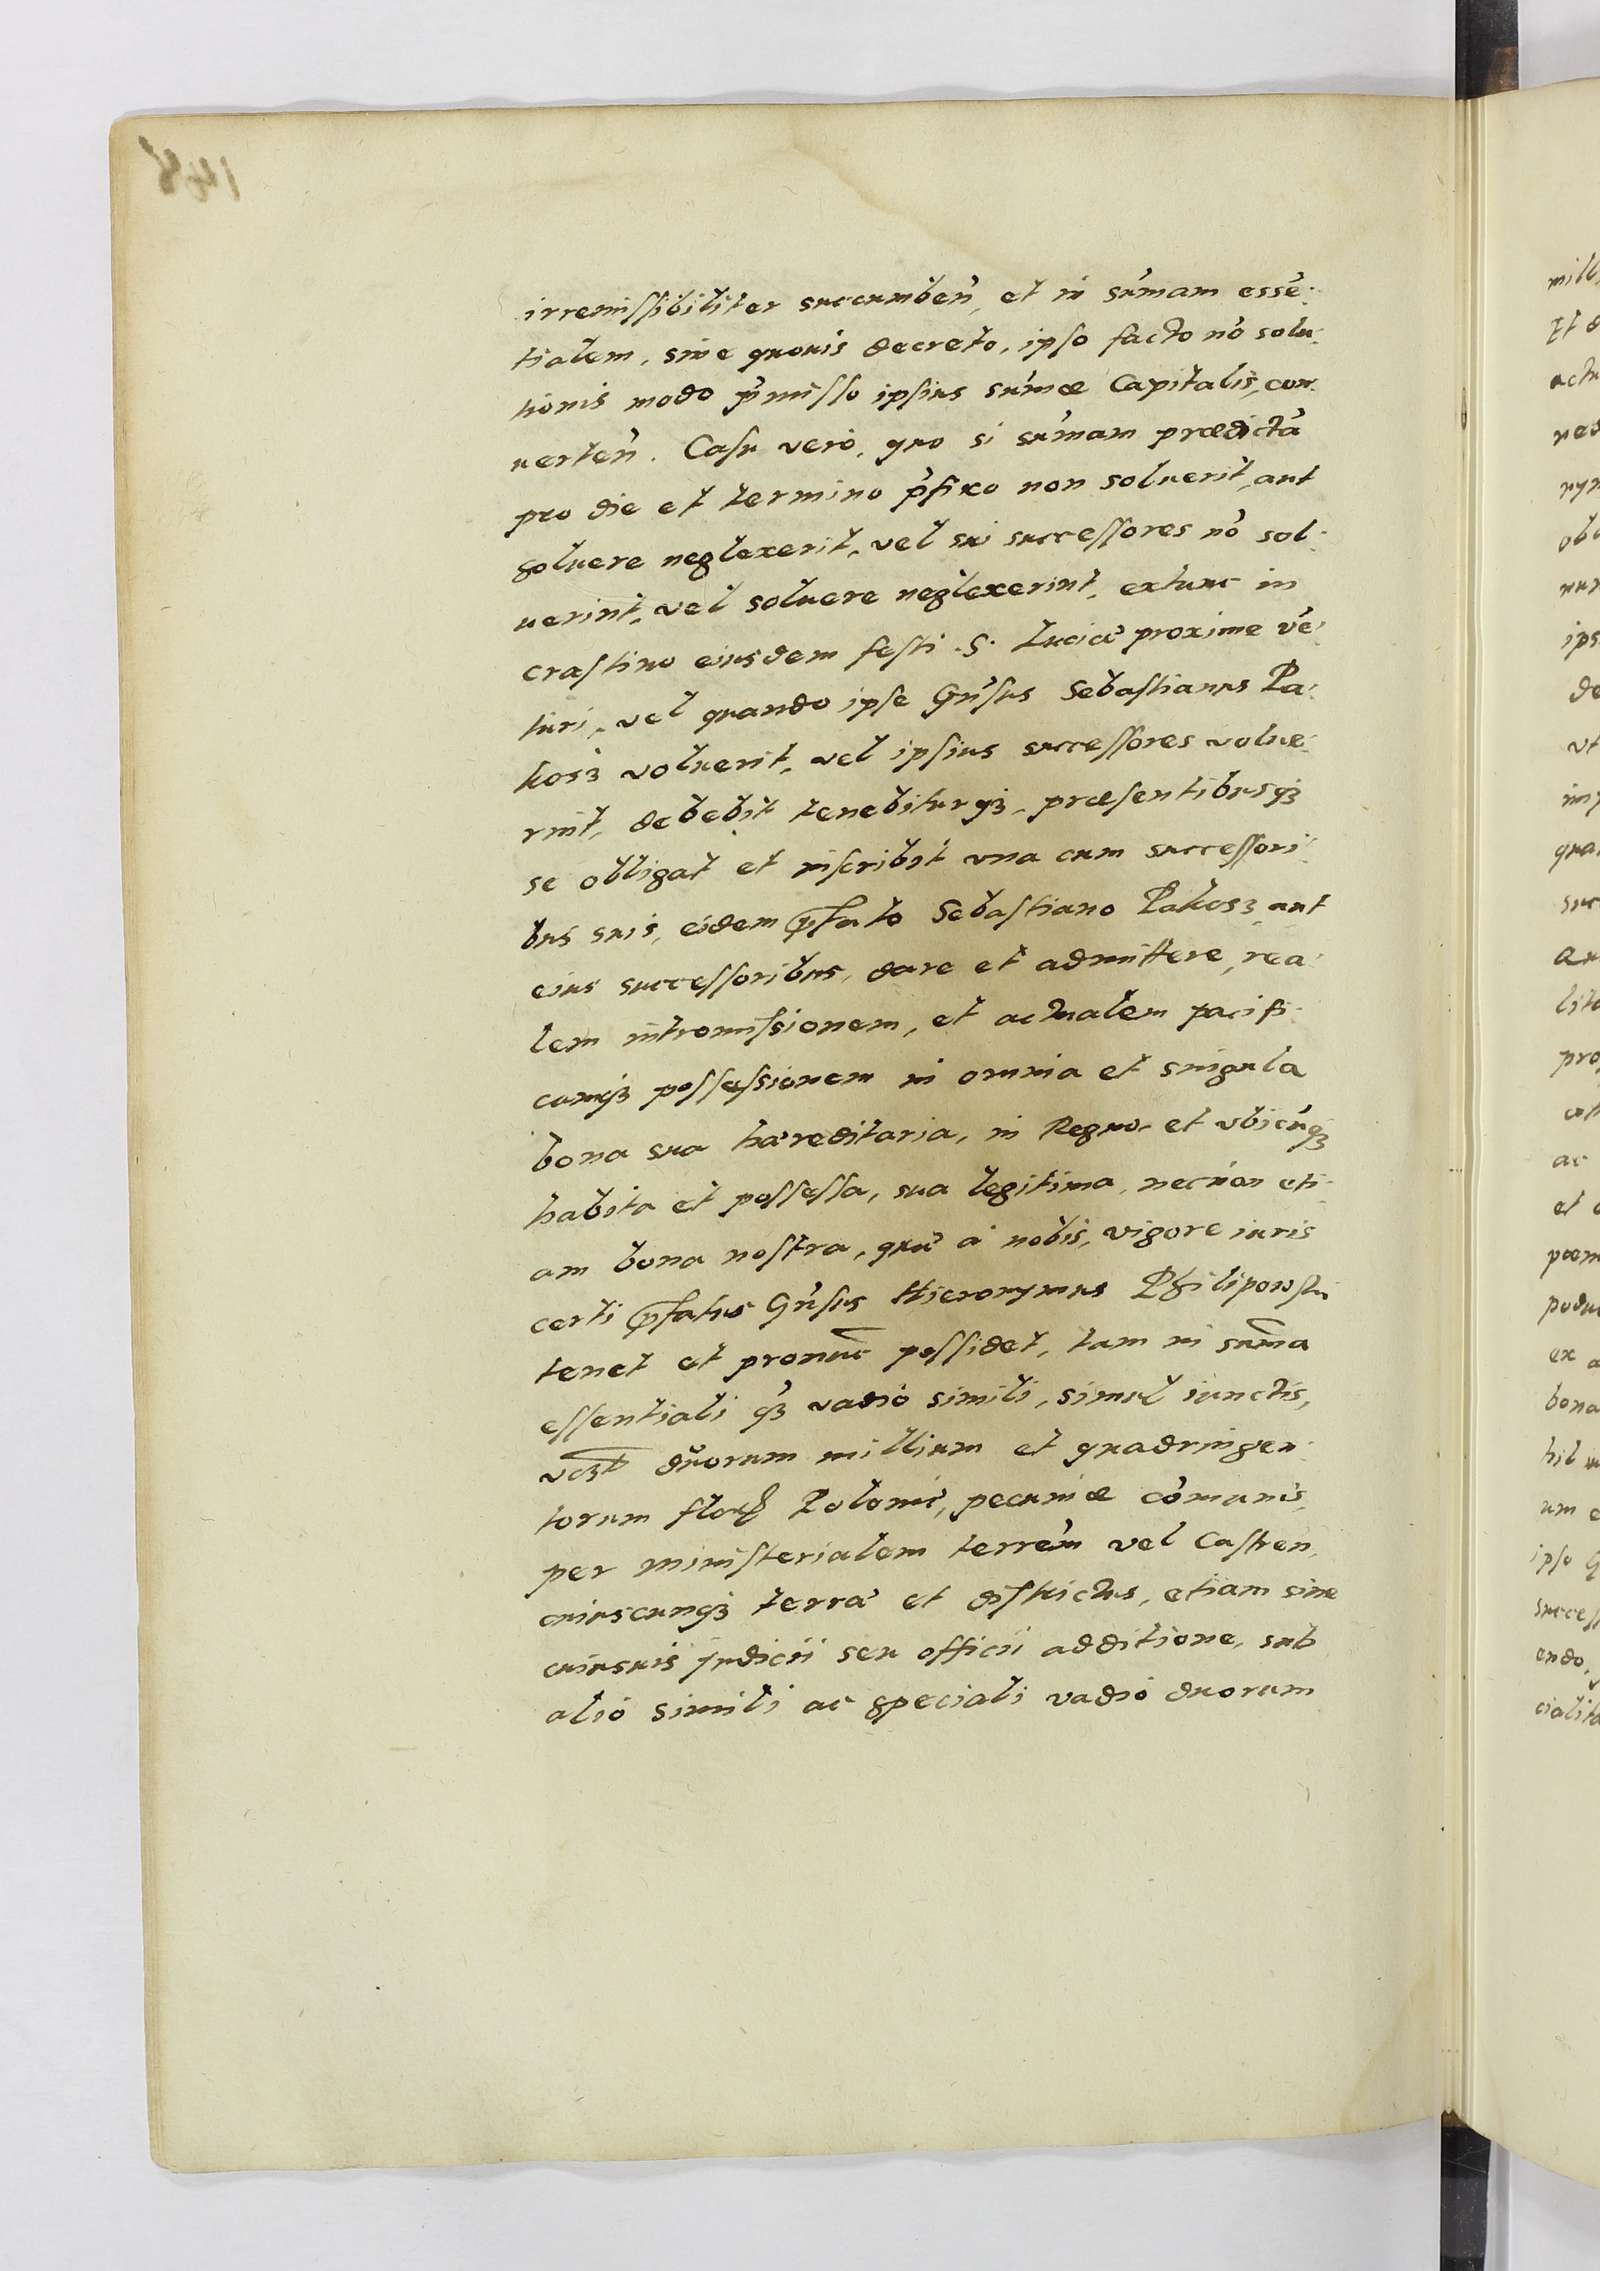 irremissibiliter succumben̄, et in sum̄am essē-
tialem, sine quouis decreto, ipso facto nō solu-
tionis modo p̄misso ipsius sum̄æ Capitalis, con-
uerten̄. Casu verò, quo si sum̄am prædictā
pro die et termino p̄fixo non soluerit, aut
soluere neglexerit, vel sui successores nō sol-
uerint, vel soluere neglexerint, extunc in
crastino eiusdem festi S. Luciæ proxime vē-
turi, vel quando ipse Gn̄sus Sebastianus Pa-
kosz voluerit, vel ipsius successores volue-
rint, debebit tenebiturqȝ, præsentibusqȝ
se obligat et inscribit vna cum successori-
bus suis, eidem p̄fato Sebastiano Pakosz aut
eius successoribus, dare et admittere rea-
lem intromissionem, et actualem pacifi-
camqȝ possessionem in omnia et singula
bona sua hæreditaria, in Regno et vbicūqȝ
habita et possessa, sua legitima, necnon eti-
am bona nostra, quæ à nobis, vigore iuris
certi p̄fatus Gn̄sus Hieronymus Philipowski
tenet et pronunc possidet, tam in sum̄a
essentiali qȝ vadio simili, simul iunctis,
vcȝt duorum millium et quadringen-
torum flor. Polonic, pecuniæ cōmunis
per ministerialem terrēm vel Castren
cuiuscunqȝ terræ et districtus, etiam sine
cuiusuis Judicii seu officii additione, sub
alio simili ac speciali vadio duorum